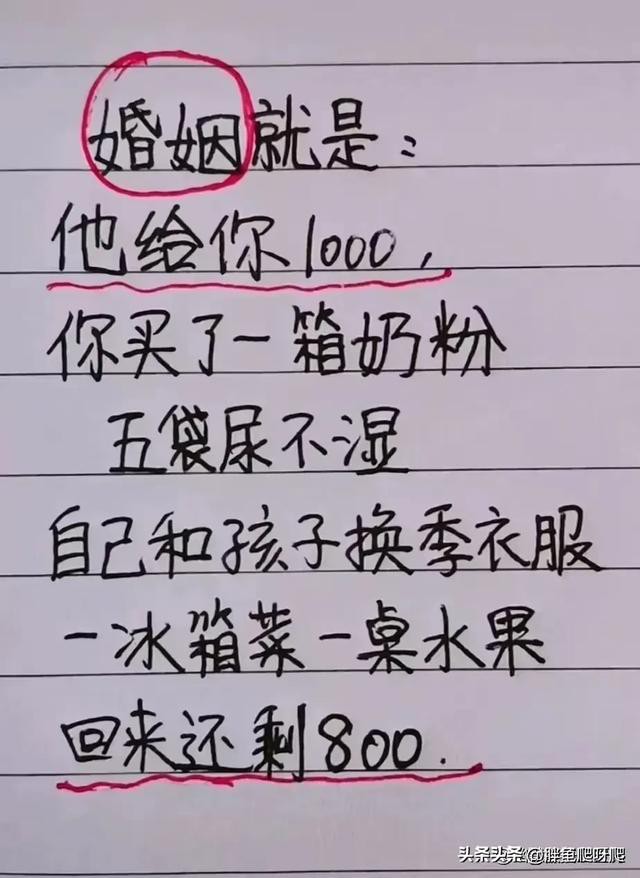 婚姻就是：
他给你1000，
你买了一箱奶粉
五袋尿不湿
自己和孩子换季衣服
一冰箱菜一桌水果
回来还剩800.
头条头条 @胖鱼爬呀爬